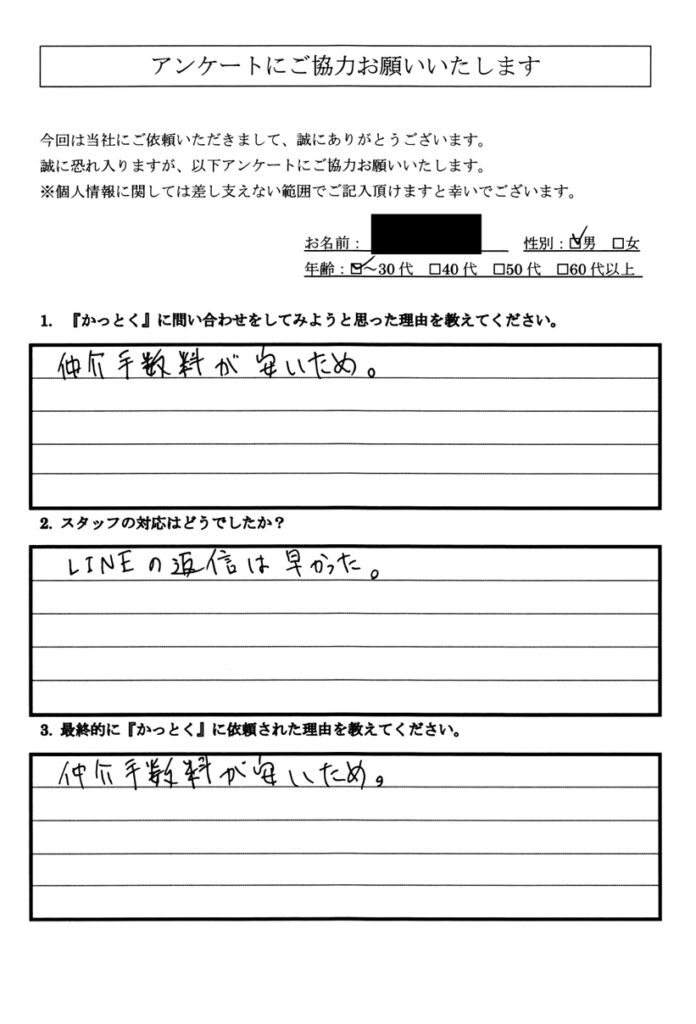 アンケートにご協力お願いいたします
今回は当社にご依頼いただきまして、誠にありがとうございます。
誠に恐れ入りますが、以下アンケートにご協力お願いいたします。
※個人情報に関しては差し支えない範囲でご記入頂けますと幸いでございます。
お名前： 性別：☑男 □女
年齢：☑～30代 □40代 □50代 □60代以上
1. 『かっとく』に問い合わせをしてみようと思った理由を教えてください。
仲介手数料が安いため。
2. スタッフの対応はどうでしたか？
LINEの返信は早かった。
3. 最終的に『かっとく』に依頼された理由を教えてください。
仲介手数料が安いため。